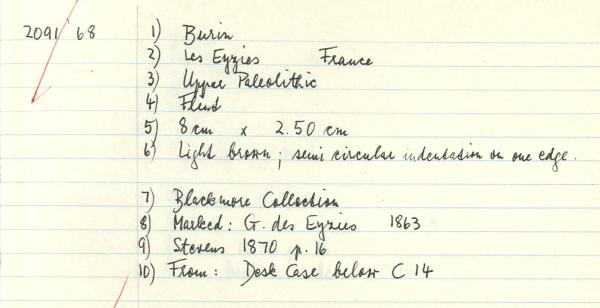 2091/68 1) Burin
2) Les Eyzies France
3) Upper Paleolithic
4) Flint
5) 8cm x 2.50 cm
6) Light brown; semi circular indentation on one edge.
7) Blackmore Collection
8) Marked: G. des Eyzies 1863
9) Stevens 1870 p. 16
10) From: Desk Case below C 14